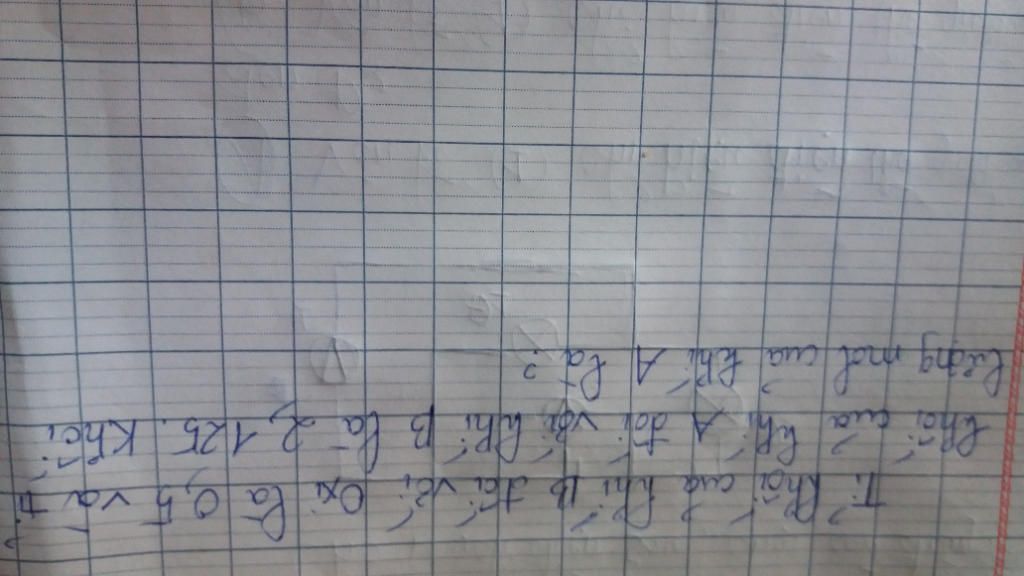 Tỉ khối của khí B đối với Oxi là 0,5 và tỉ
khối của khí A đối với khí B là 2,125. Khối
lượng mol của khí A là?